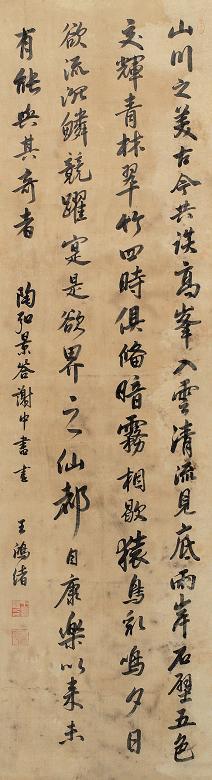 山川之美古今共談高峯入雲清流見底兩岸石壁五色
交輝青林翠竹四時俱備暗霧相歇猿鳥亂鳴夕日
欲流沉鱗競躍寔是欲界之仙都自康樂以來未
有能與其奇者
陶弘景答謝中書書
王鴻緒